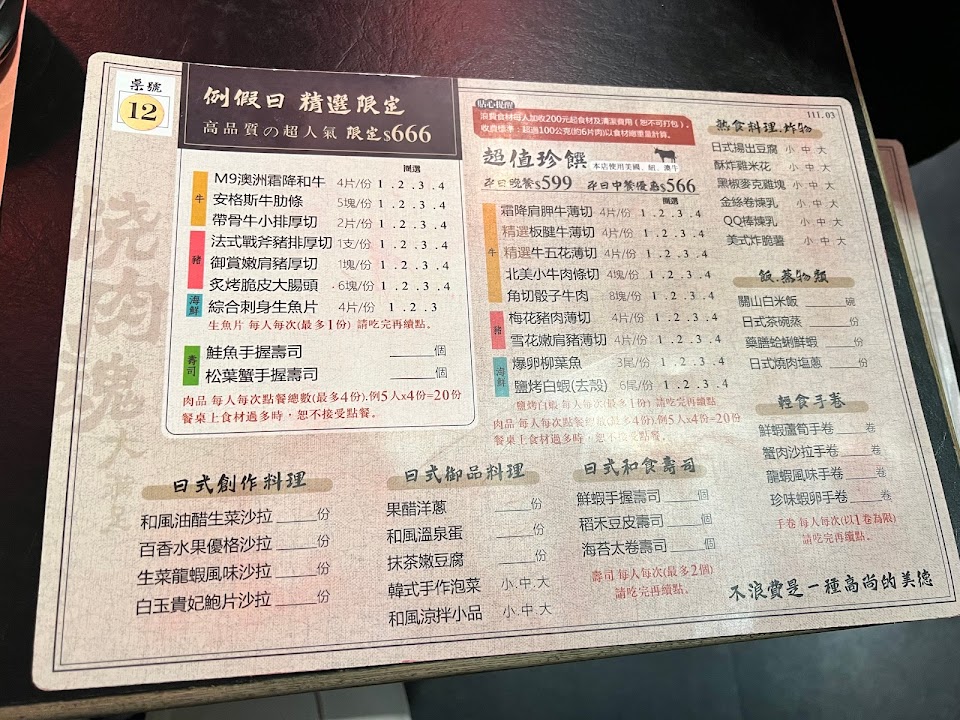 桌號
12
例假日 精選限定
高品質の超人氣 限定$666
圈選
牛
M9澳洲霜降和牛 4片/份 1 . 2 . 3 . 4
安格斯牛肋條 5塊/份 1 . 2 . 3 . 4
帶骨牛小排厚切 2片/份 1 . 2 . 3 . 4
豬
法式戰斧豬排厚切 1支/份 1 . 2 . 3 . 4
御賞嫩肩豬厚切 1塊/份 1 . 2 . 3 . 4
炙烤脆皮大腸頭 6塊/份 1 . 2 . 3 . 4
海鮮
綜合刺身生魚片 4片/份 1 . 2 . 3
生魚片 每人每次(最多1份) 請吃完再續點。
壽司
鮭魚手握壽司 ____個
松葉蟹手握壽司 ____個
肉品 每人每次點餐總數(最多4份),例5人x4份=20份
餐桌上食材過多時，恕不接受點餐。
貼心提醒
浪費食材每人加收200元起食材及清潔費用（恕不可打包）。
收費標準：超過100公克(約6片肉)以食材總重量計算。
超值珍饌 本店使用美國、紐、澳牛
平日晚餐$599 平日中餐優惠$566
圈選
牛
霜降肩胛牛薄切 4片/份 1 . 2 . 3 . 4
精選板腱牛薄切 4片/份 1 . 2 . 3 . 4
精選牛五花薄切 4片/份 1 . 2 . 3 . 4
北美小牛肉條切 4塊/份 1 . 2 . 3 . 4
角切骰子牛肉 8塊/份 1 . 2 . 3 . 4
豬
梅花豬肉薄切 4片/份 1 . 2 . 3 . 4
雪花嫩肩豬薄切 4片/份 1 . 2 . 3 . 4
海鮮
爆卵柳葉魚 3尾/份 1 . 2 . 3 . 4
鹽烤白蝦(去殼) 6尾/份 1 . 2 . 3 . 4
鹽烤白蝦 每人每次(最多1份) 請吃完再續點。
肉品 每人每次點餐總數(最多4份),例5人x4份=20份
餐桌上食材過多時，恕不接受點餐。
111.03
熱食料理.炸物
日式揚出豆腐 小 中 大
酥炸雞米花 小 . 中 . 大
黑椒麥克雞塊 小 . 中 . 大
金絲卷煉乳 小 . 中 . 大
QQ棒煉乳 小 . 中 . 大
美式炸脆薯 小 . 中 . 大
飯.蒸物類
關山白米飯 ____碗
日式茶碗蒸 ____份
藥膳蛤蜊鮮蝦 ____份
日式燒肉塩蔥 ____份
輕食手卷
鮮蝦蘆筍手卷____卷
蟹肉沙拉手卷____卷
龍蝦風味手卷____卷
珍味蝦卵手卷____卷
手卷 每人每次(以1卷為限)
請吃完再續點。
日式創作料理
和風油醋生菜沙拉 ____份
百香水果優格沙拉 ____份
生菜龍蝦風味沙拉 ____份
白玉貴妃鮑片沙拉 ____份
日式御品料理
果醋洋蔥 ____份
和風溫泉蛋 ____份
抹茶嫩豆腐 ____份
韓式手作泡菜 小 . 中 . 大
和風涼拌小品 小 . 中 . 大
日式和食壽司
鮮蝦手握壽司 ____個
稻禾豆皮壽司 ____個
海苔太卷壽司 ____個
壽司 每人每次(最多2個)
請吃完再續點。
不浪費是一種高尚的美德
燒肉魂